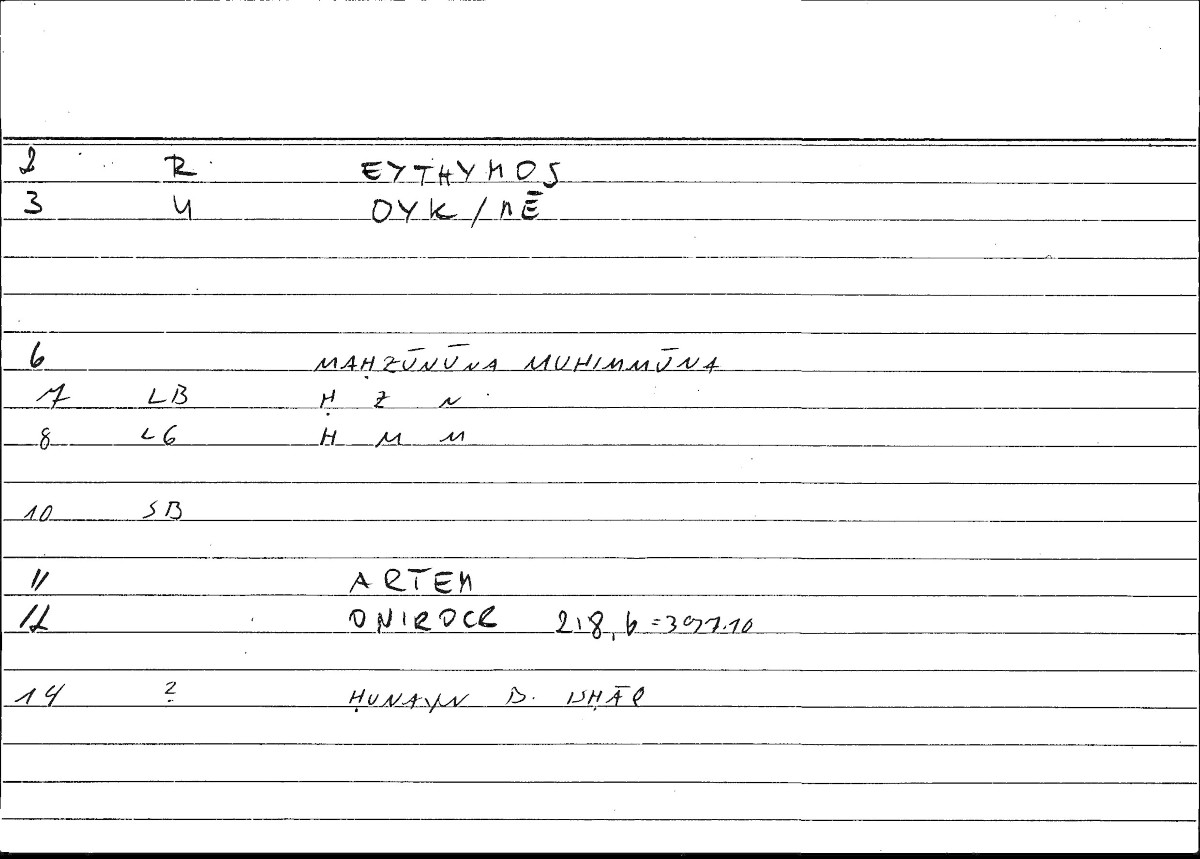 2 R EYTHYMOS
3 4 OYK / MĒ
6 MAḤZŪNŪNA MUHIMMŪNA
7 LB Ḥ Z N
8 LB H M M
10 SB
11 ARTEM
12 ONIROCR 218, 6 = 397.10
14 2 ḤUNAYN B. ISḤĀQ